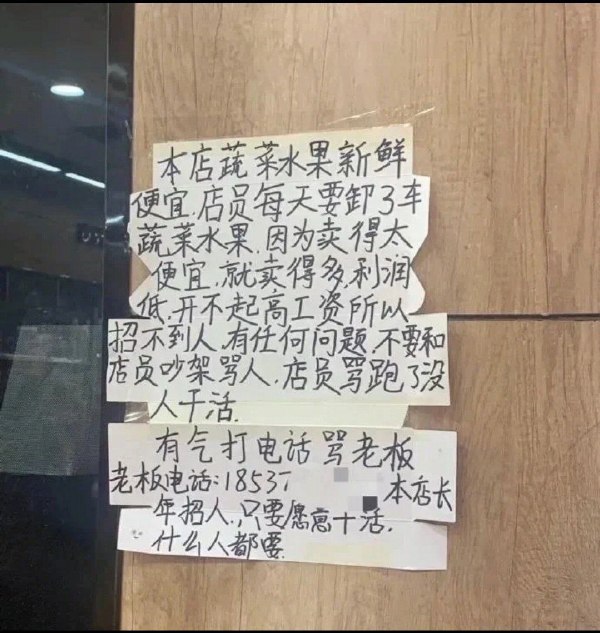 本店蔬菜水果新鲜
便宜.店员每天要卸3车
蔬菜水果.因为卖得太
便宜.就卖得多.利润
低.开不起高工资所以
招不到人.有任何问题.不要和
店员吵架骂人.店员骂跑了没
人干活.
有气打电话骂老板
老板电话:18537
本店长
年招人.只要愿意干活.
什么人都要.